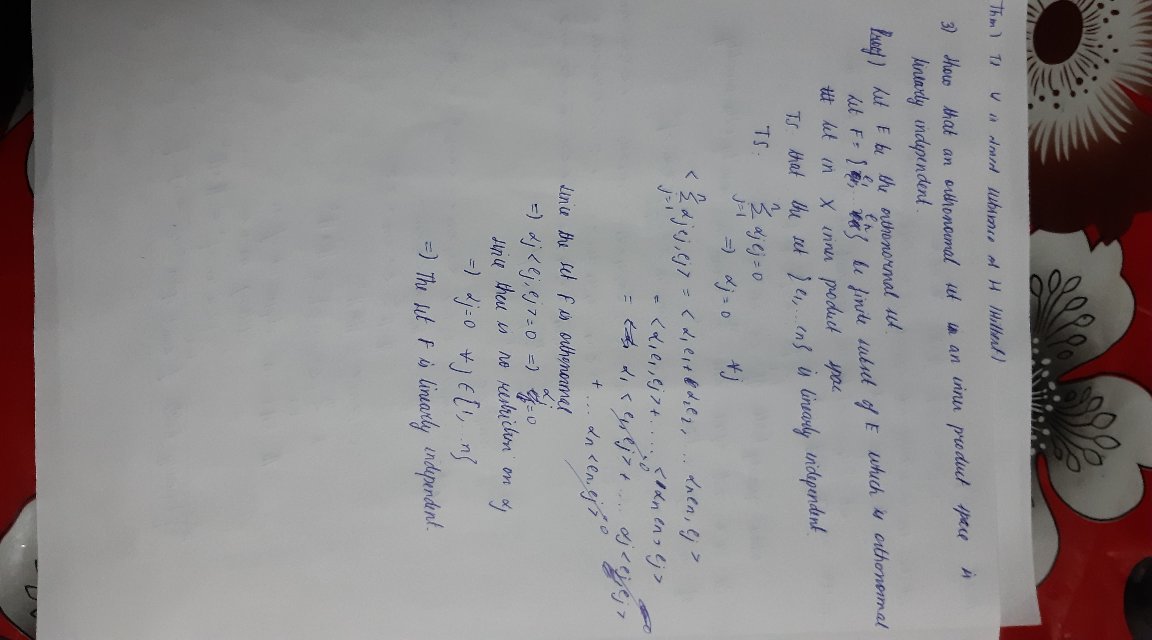 Thm) TS V is closed subspace of H (Hilbert)
3) Show that an orthonormal set in an inner product space is
linearly independent.
Proof) Let E be the orthonormal set.
Let F = {e1, ... en} be finite subset of E which is orthonormal
set in X inner product spac
TS. that the set {e1, ... en} is linearly independent.
TS. n∑j=1 αjej = 0
=) αj = 0 ∀j
< n∑j=1 αjej, ej> = < α1e1 + α2e2, ... αnen, ej >
= <α1e1, ej> + .... <αnen, ej>
= α1 <e1, ej> 0 + ... αj <ej, ej>
+ ... αn <en, ej> 0
since the set F is orthonormal
=) αj <ej, ej> = 0 =) αj = 0
since there is no restriction on αj
=) αj = 0 ∀j ∈ {1, ... n}
=) The set F is linearly independent.